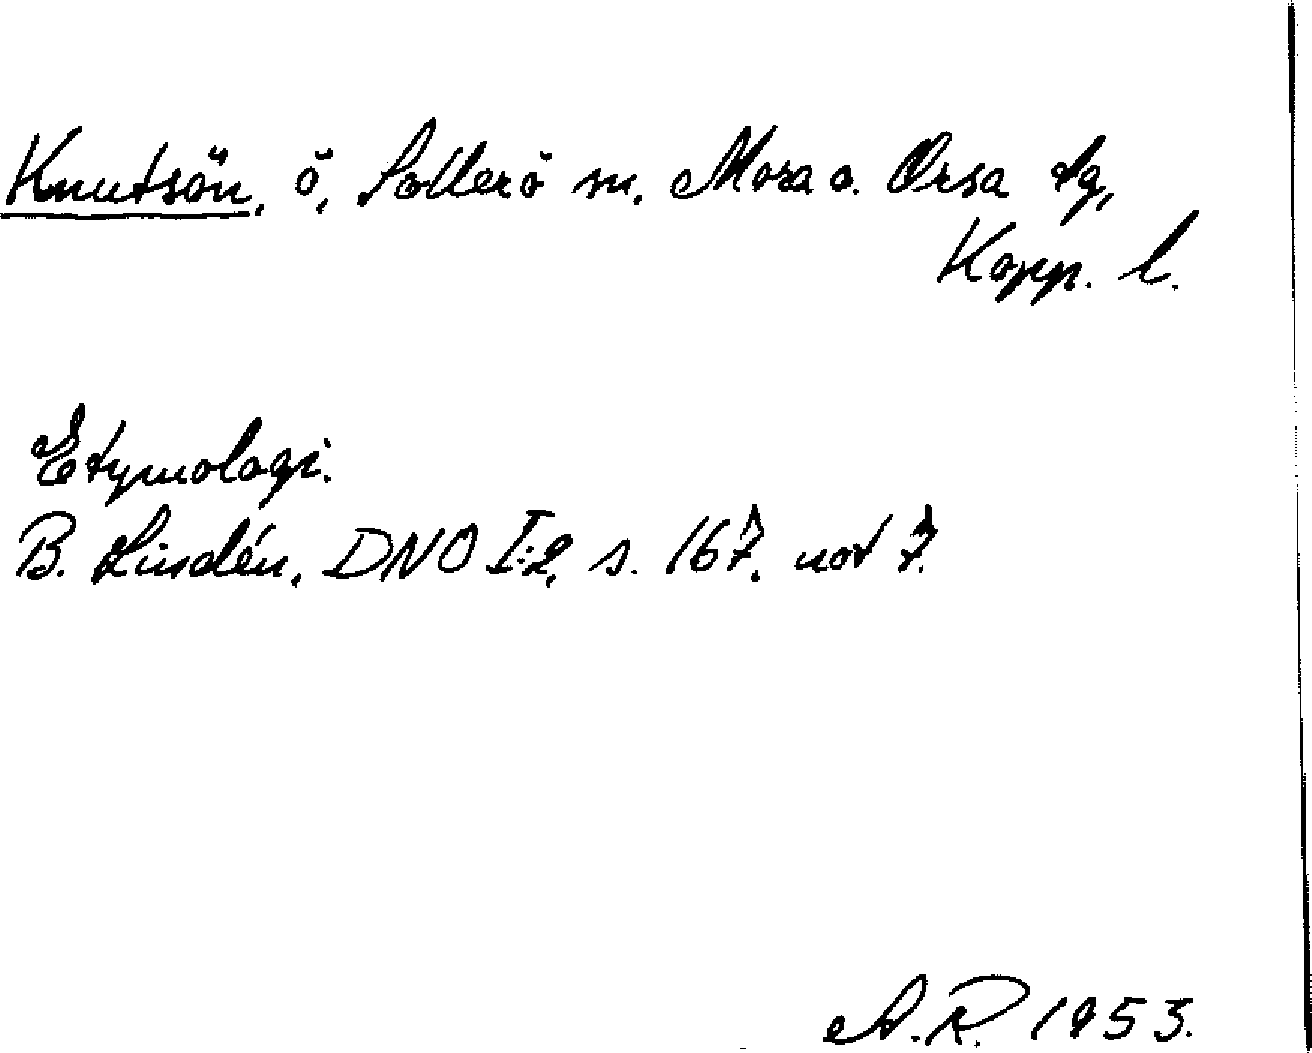 Knutsön, ö, Sollerö sn, Mora o. Orsa tg,
Kopp. l.
Etymologi.
B. Lindén, DNO I:2, s. 167, not 7.
A.R. 1953.